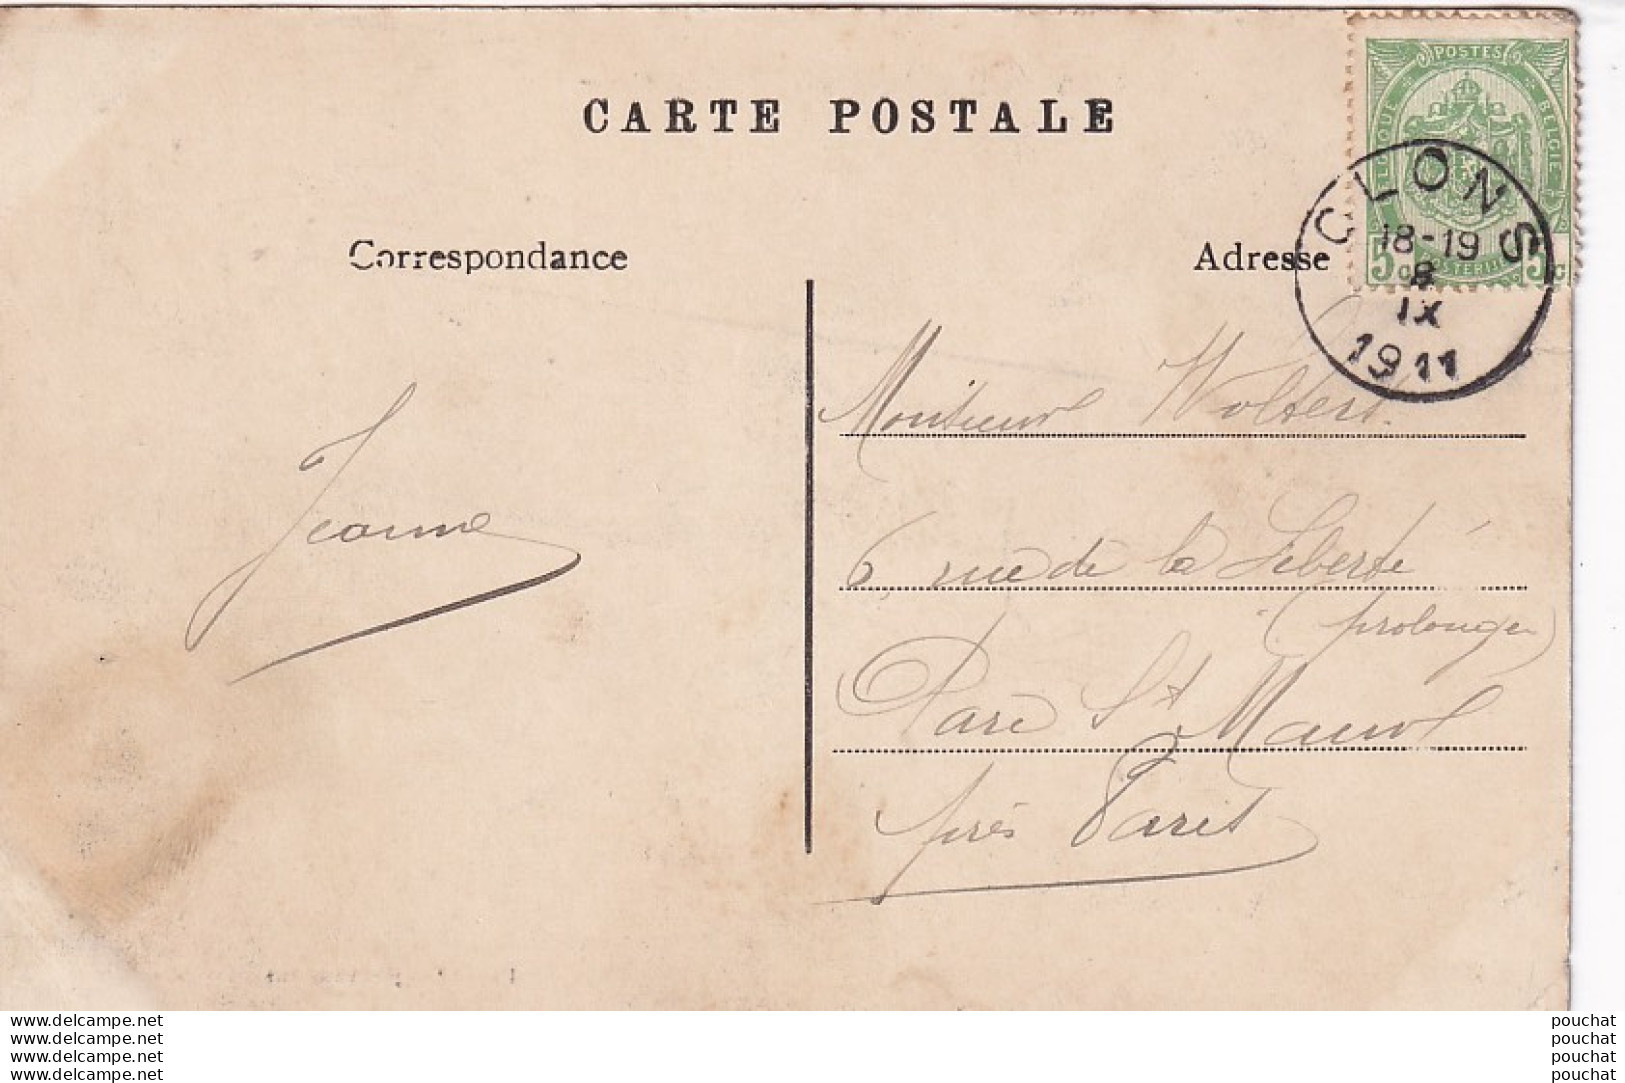 CARTE POSTALE
POSTES
BELGIE
5c 5c
CLONS
18-19
8
IX
1911
Correspondance
Adresse
Monsieur Wolters
6, rue de la Liberté
(prolongée)
Parc St Maur
près Paris
Jeanne
www.delcampe.net
www.delcampe.net
www.delcampe.net
www.delcampe.net
pouchat
pouchat
pouchat
pouchat